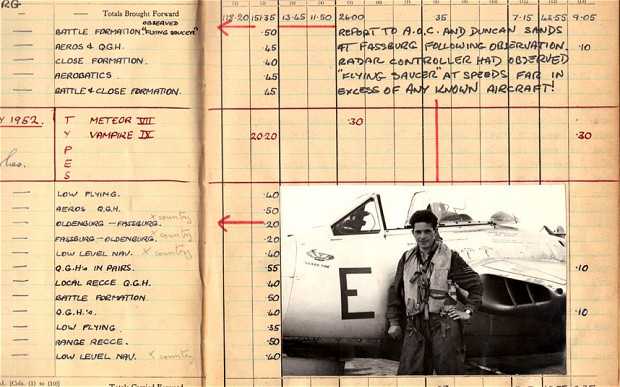 (1) (2) (3) (4) (5) (6) (7) (8) (9) (10) (11) (12) (13)
Totals Brought Forward 118·20 151·35 13·45 11·50 26·00 35 7·15 42·55 9·05
OBSERVED
BATTLE FORMATION. "FLYING SAUCER" ·50 REPORT TO A.O.C. AND DUNCAN SANDS
AEROS & Q.G.H. ·45 AT FASSBURG FOLLOWING OBSERVATION. ·10
CLOSE FORMATION. ·40 RADAR CONTROLLER HAD OBSERVED
AEROBATICS. ·45 "FLYING SAUCER" AT SPEEDS FAR IN
BATTLE & CLOSE FORMATION. ·45 EXCESS OF ANY KNOWN AIRCRAFT!
Y 1952. T METEOR VII ·30
Y VAMPIRE IX 20·20 ·30
P
E
S
LOW FLYING. ·40
AEROS Q.G.H. ·50
OLDENBURG — FASSBURG. x country ·20
FASSBURG — OLDENBURG. x country
LOW LEVEL NAV. x country
Q.G.H's IN PAIRS. ·55 ·10
LOCAL RECCE Q.G.H.
BATTLE FORMATION
Q.G.H.'s. ·40 ·10
LOW FLYING. ·35
RANGE RECCE. ·50
LOW LEVEL NAV. x country ·40
[Cols. (1) to (10)] Totals Carried Forward
E